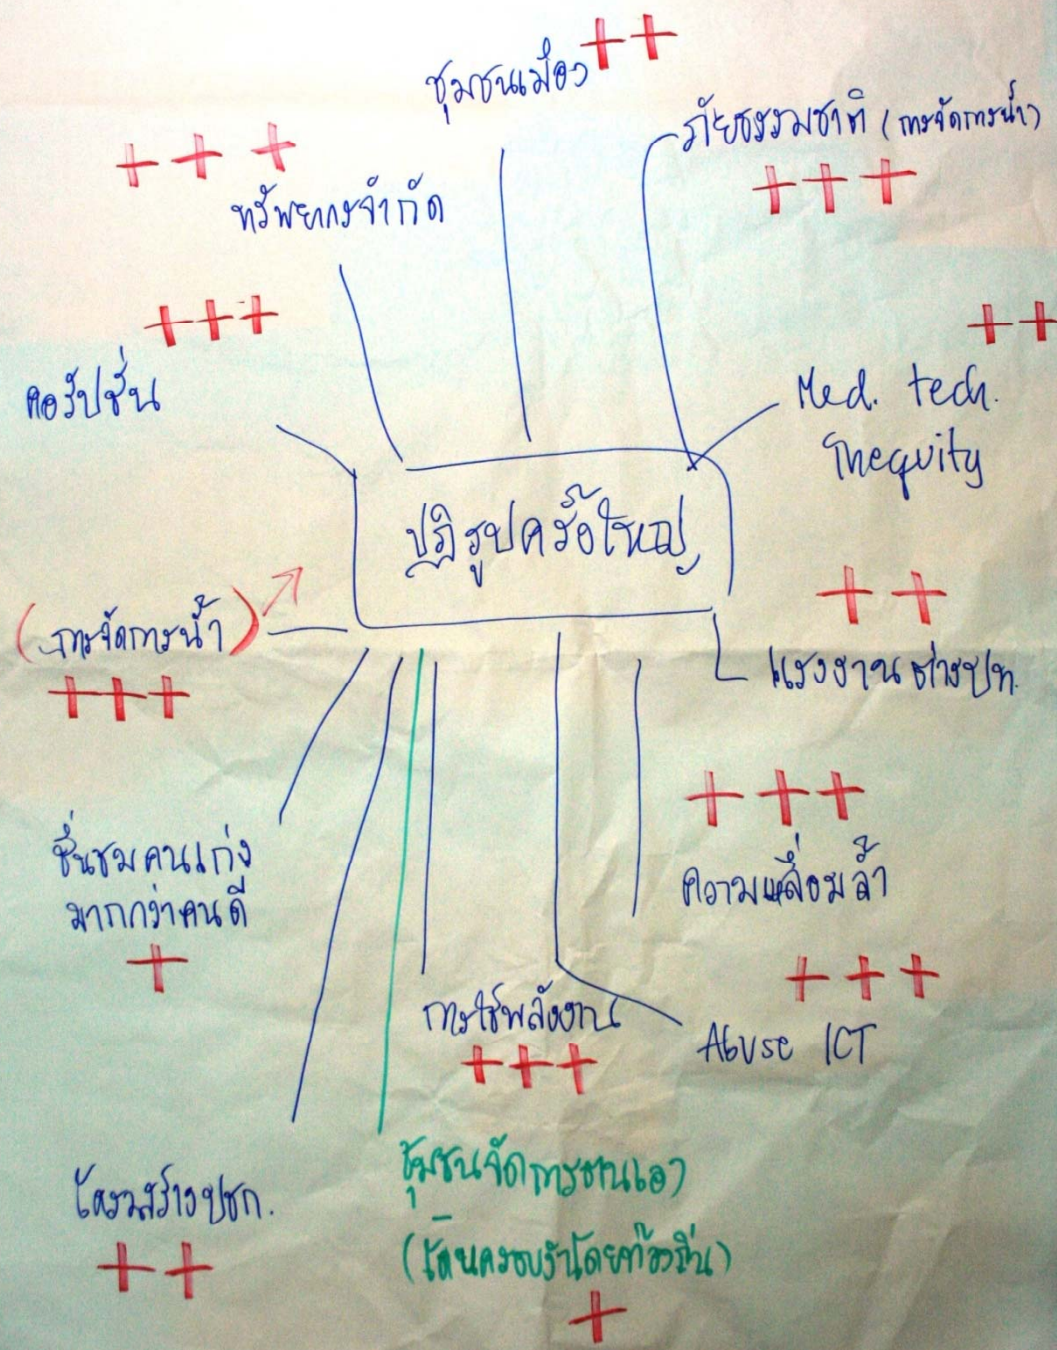 ชุมชนเมือง ++
ภัยธรรมชาติ (การจัดการน้ำ)
+++
+++
ทรัพยากรจำกัด
+++
คอรัปชั่น
++
Med. tech.
Inequity
ปฏิรูปครั้งใหญ่
(การจัดการน้ำ)
+++
++
แรงงานต่างปท.
+++
ความเหลื่อมล้ำ
ชื่นชมคนเก่ง
มากกว่าคนดี
+
+++
Abuse ICT
การใช้พลังงาน
+++
โครงสร้างปชก.
++
ชุมชนจัดการตนเอง
(โดนครอบงำโดยท้องถิ่น)
+